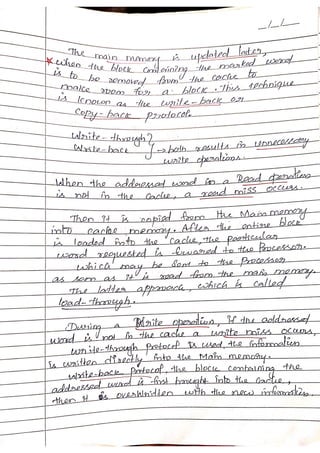 The main memory is updated later,
* when the block containing the marked word
is to be removed from the cache to
make room for a block. This technique
is known as the write-back or
copy-back protocol.
Write-through
Write-back } → both results in unnecessary
write operations.
When the addressed word in a Read operation
is not in the cache, a read miss occurs.
Then it is copied from the Main memory
into cache memory. After the entire block
is loaded into the cache, the particular
word requested is forwared to the Processor.
Which may be sent to the Processor
as soon as it is read from the main memory.
The latter approach, which is called
load-through.
During a Write operation, if the addressed
word is not in the cache a write miss occurs,
write-through protocol is used, the information
is written directly into the Main memory.
write-back protocol, the block containing the
addressed word is first brought into the cache,
then it is overwritten with the new information.